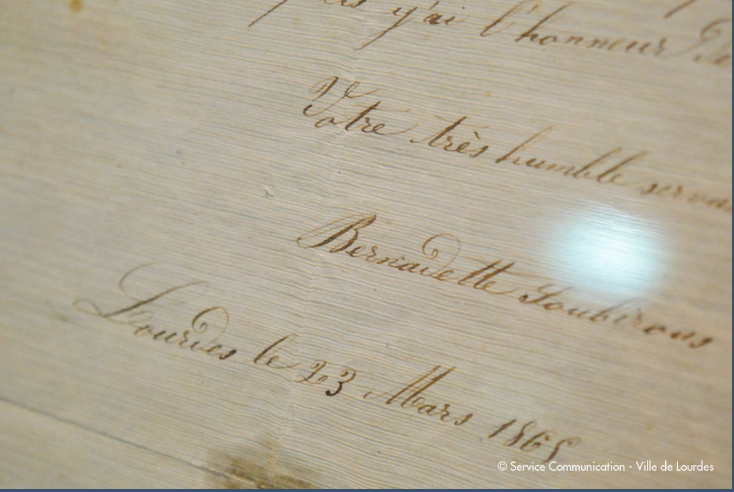 y'ai l'honneur
Votre très humble
Bernadette Soubirous
Lourdes le 23 Mars
© Service Communication - Ville de Lourdes